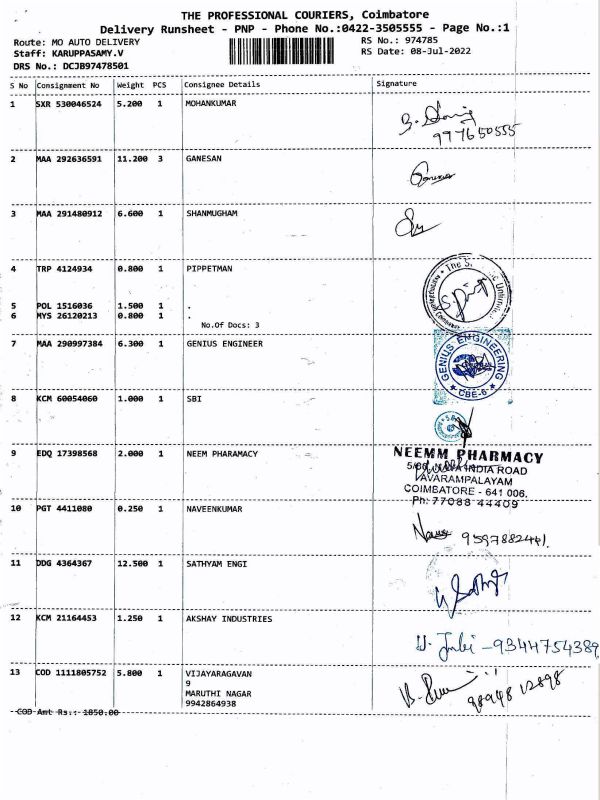 THE PROFESSIONAL COURIERS, Coimbatore
Delivery Runsheet - PNP - Phone No.:0422-3505555 - Page No.:1
Route: MO AUTO DELIVERY RS No.: 974785
Staff: KARUPPASAMY.V RS Date: 08-Jul-2022
DRS No.: DCJB97478501
S No Consignment No Weight PCS Consignee Details Signature
1 SXR 530046524 5.200 1 MOHANKUMAR
2 MAA 292636591 11.200 3 GANESAN
3 MAA 291480912 6.600 1 SHANMUGHAM
4 TRP 4124934 0.800 1 PIPPETMAN
5 POL 1516036 1.500 1 .
6 MYS 26120213 0.800 1 .
No.Of Docs: 3
7 MAA 290997384 6.300 1 GENIUS ENGINEER
GENIUS ENGINEERING
CBE-6
8 KCM 60054060 1.000 1 SBI
9 EDQ 17398568 2.000 1 NEEM PHARAMACY
NEEMM PHARMACY
INDIA ROAD
AVARAMPALAYAM
COIMBATORE - 641 006.
Ph: 77088 44409
10 PGT 4411080 0.250 1 NAVEENKUMAR
9597882441.
11 DDG 4364367 12.500 1 SATHYAM ENGI
12 KCM 21164453 1.250 1 AKSHAY INDUSTRIES
9344754389
13 COD 1111805752 5.800 1 VIJAYARAGAVAN
9
MARUTHI NAGAR
9942864938
98948 12898
COD Amt Rs.: 1850.00